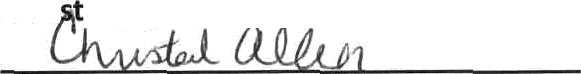 st
Christal Allen